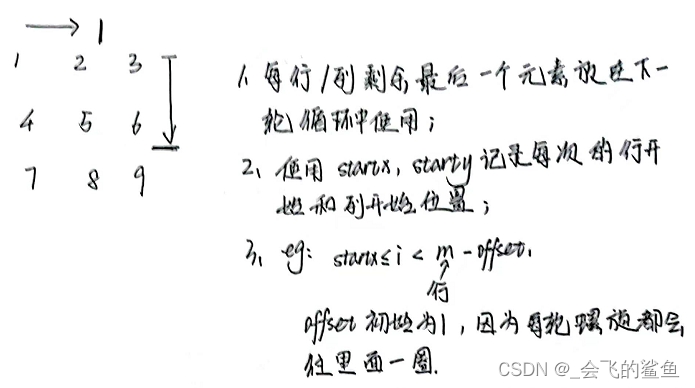 1 2 3
4 5 6
7 8 9
1、每行/列剩余最后一个元素放进下一
轮循环中使用；
2、使用 startx, starty 记录每次的行开
始和列开始位置；
3、eg: startx≤i<m-offset,
行
offset 初始为1，因为每轮螺旋都会
往里面一圈.
CSDN @_会飞的鲨鱼